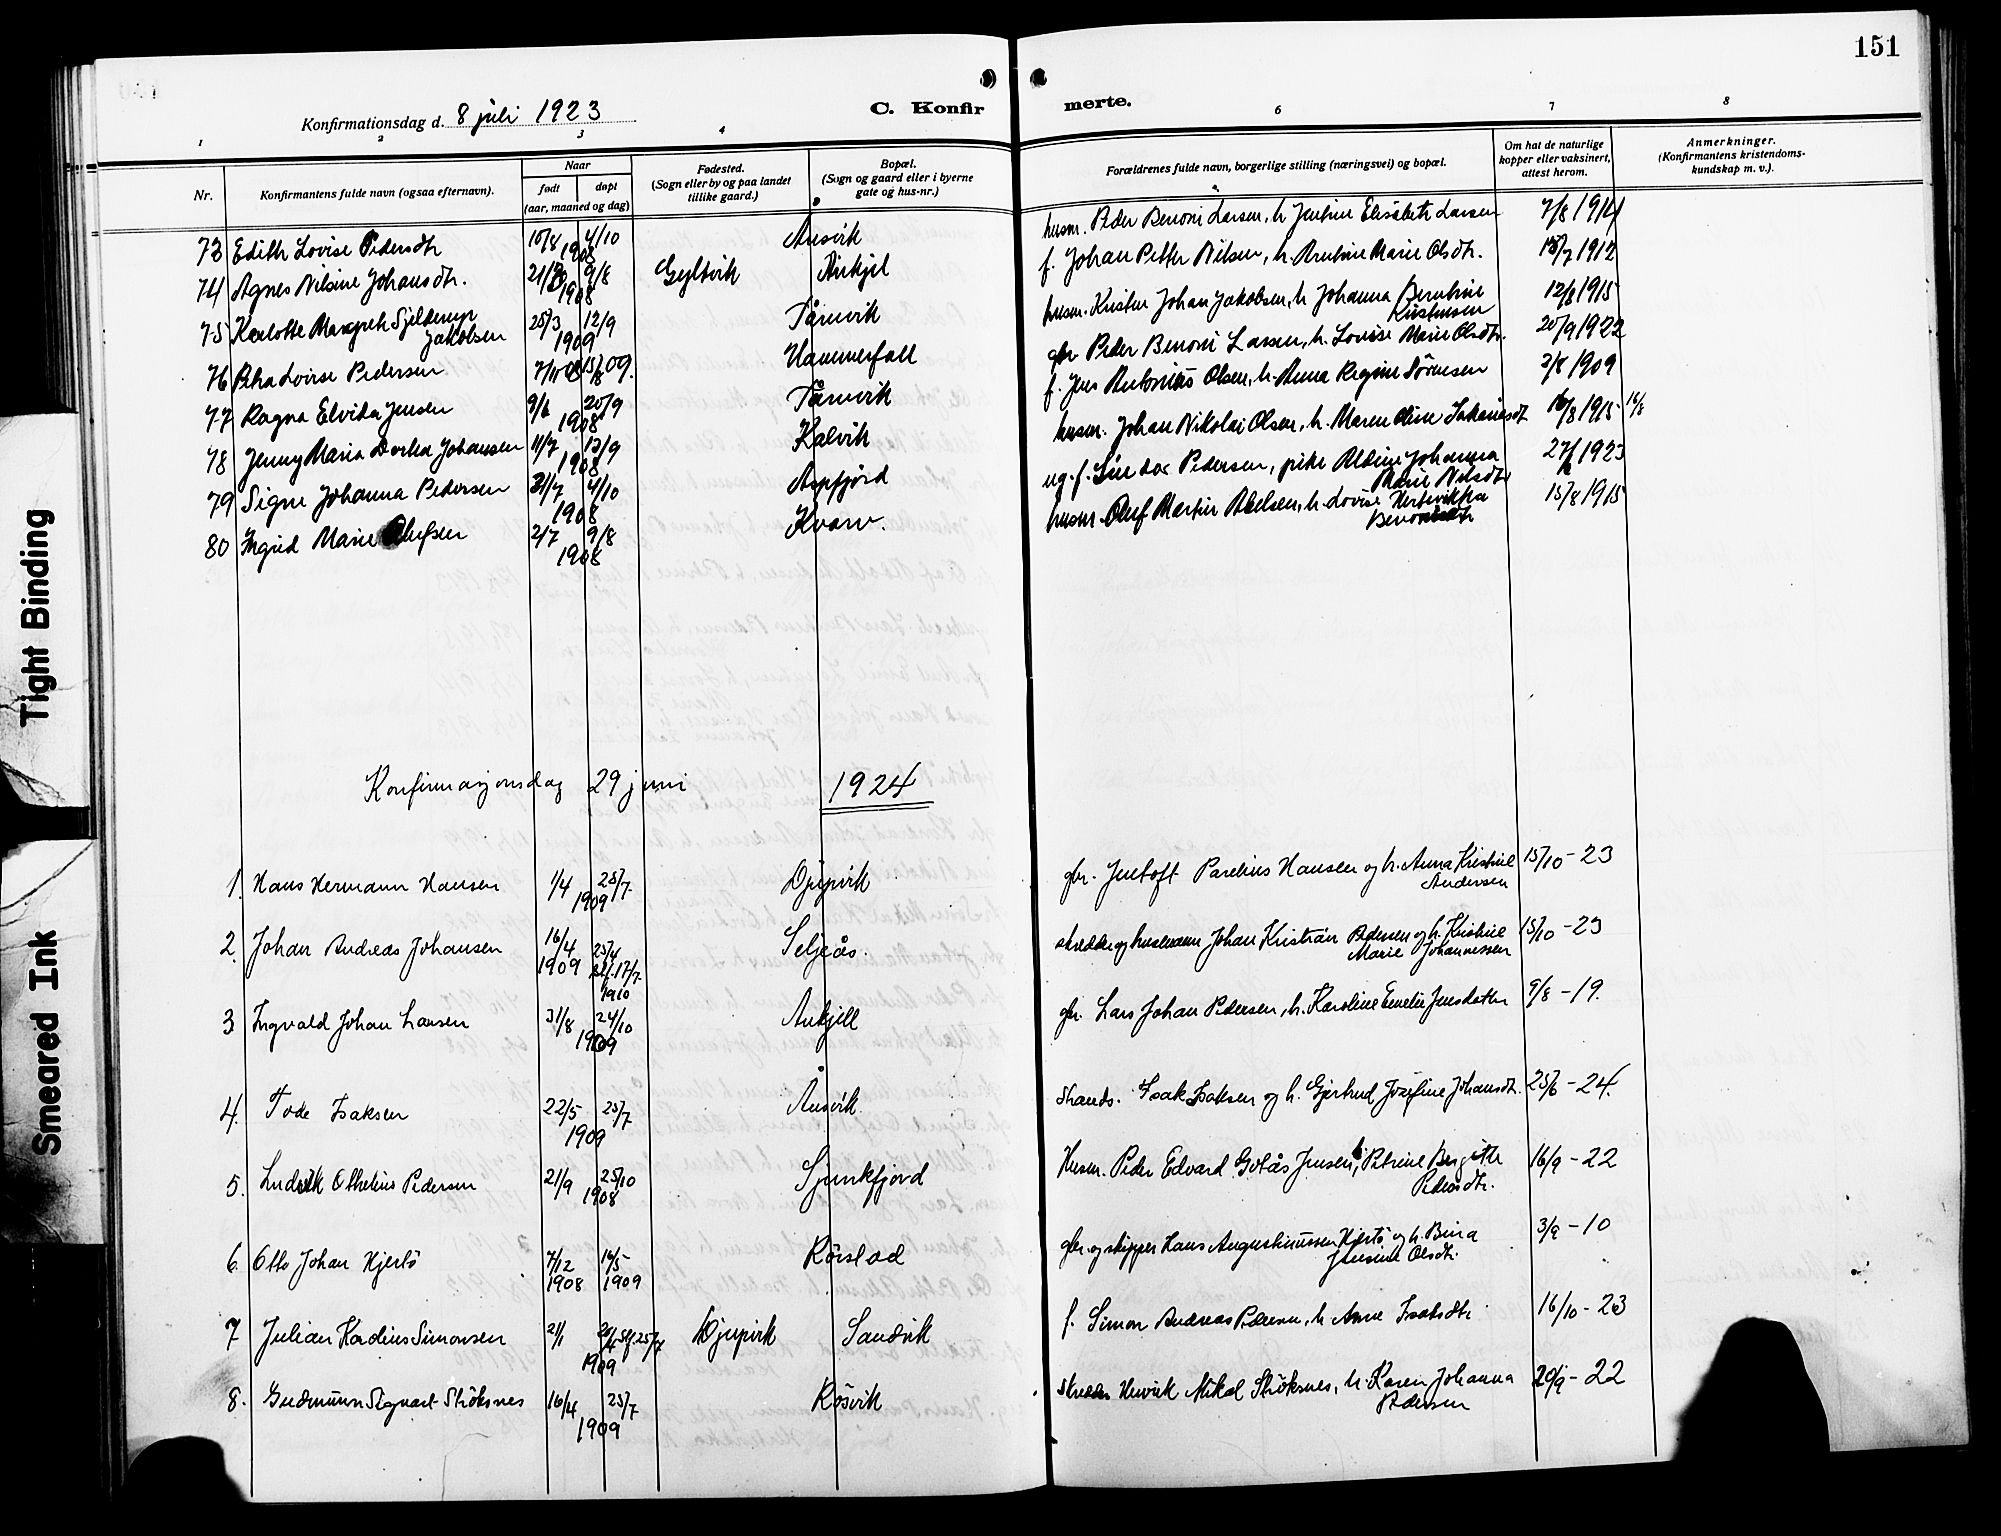 151
Konfirmationsdag d. 8 juli 1923
C. Konfirmerte.
1 2 3 4 6 7 8
Nr.
Konfirmantens fulde navn (ogsaa efternavn).
Naar
født døpt
(aar, maaned og dag)
Fødested.
(Sogn eller by og paa landet
tillike gaard.)
Bopæl.
(Sogn og gaard eller i byerne
gate og hus-nr.)
Forældrenes fulde navn, borgerlige stilling (næringsvei) og bopæl.
Om hat de naturlige
kopper eller vaksinert,
attest herom.
Anmerkninger.
(Konfirmantens kristendoms-
kundskap m. v.).
73 Edith Lovise Pedersdtr 10/8 4/10 1908 Ansvik husm. Peder Benoni Larsen, h. Jentine Elisabeth Larsen 7/8 1914
74 Agnes Nilsine Johansdtr. 9/8 1908 Gyltvik Aukjel f. Johan Petter Nilsen, h. Berntine Marie Olsdtr. 1912
75 Karlotte Margreth Sjelderup Jakobsen 25/3 12/9 1909 Tårnvik husm. Kristen Johan Jakobsen, h. Johanna Berntine Kristensen 12/8 1915
76 Lovise Pedersen 7/11 08 Hammerfall gbr Peder Benoni Larsen, h. Lovise Marie Olsdtr. 20/9 1922
77 Ragna Elvida Jensen 9/6 20/9 1908 Tårnvik f. Jens Antonius Olsen, h. Anna Regine Sörensen 3/8 1909
78 Jenny Maria Dorthea Johansen 11/7 13/9 1908 Kalvik husm. Johan Nikolai Olsen, h. Maren Oline Zakariasdt 16/8 1915 16/8
79 Signe Johanna Pedersen 31/7 4/10 1908 Aspfjord ug. f. Pedersen, pike Aldine Johanna Marie Nilsdtr 1923
80 Ingrid Marie Olufsen 2/7 9/8 1908 Kvarv. husm. Oluf Martin Abelsen, h. Lovise Hertinikka Benonisdtr 15/8 1915
Konfirmasjonsdag 29 juni 1924
1. Hans Hermann Hansen 1/4 25/7 1909 Djupvik gbr. Jentoft Parelius Hansen og h. Anna Kristine Andersen 15/10 - 23
2. Johan Andreas Johansen 16/4 1909 25/4 stf. 17/7 1910 Seljeås. skredder og husmann Johan Kristian Pedersen og h. Kristine Marie Johannessen 15/10 - 23
3 Ingvald Johan Larsen 31/8 24/10 1909 Aukjell gbr. Lars Johan Pedersen, h. Karoline Emelie Jensdatter 9/8 - 19.
4. Tode Isaksen 22/5 25/7 1909 Ånsvik Strands. Isak Isaksen og h. Gjertrud Josefine Johansdt. 25/6 - 24.
5. Ludvik Othelius Pedersen 21/9 25/10 1908 Sjunkfjord Husm. Peder Edvard Gotås Jensen, h. Petrine Bergitte Pedersdtr. 16/9 - 22
6. Otto Johan Hjertö 7/12 1908 16/5 1909 Rörstad gbr. og skipper Hans Augustinussen Hjertö og h. Bina Jensine Olsdtr. 3/9 - 10
7 Julian Hardius Simonsen 21/1 stf. 25/7 1909 Djupvik Sandvik f. Simon Andreas Pedersen, h. Anne Isaksdtr 16/10 - 23
8. Gudmunn Sigvart Ströksnes 16/4 25/7 1909 Rösvik Skredder Henrik Mikal Ströksnes, h. Karen Johanna Pedersen 20/9 - 22
Tight Binding
Smeared Ink